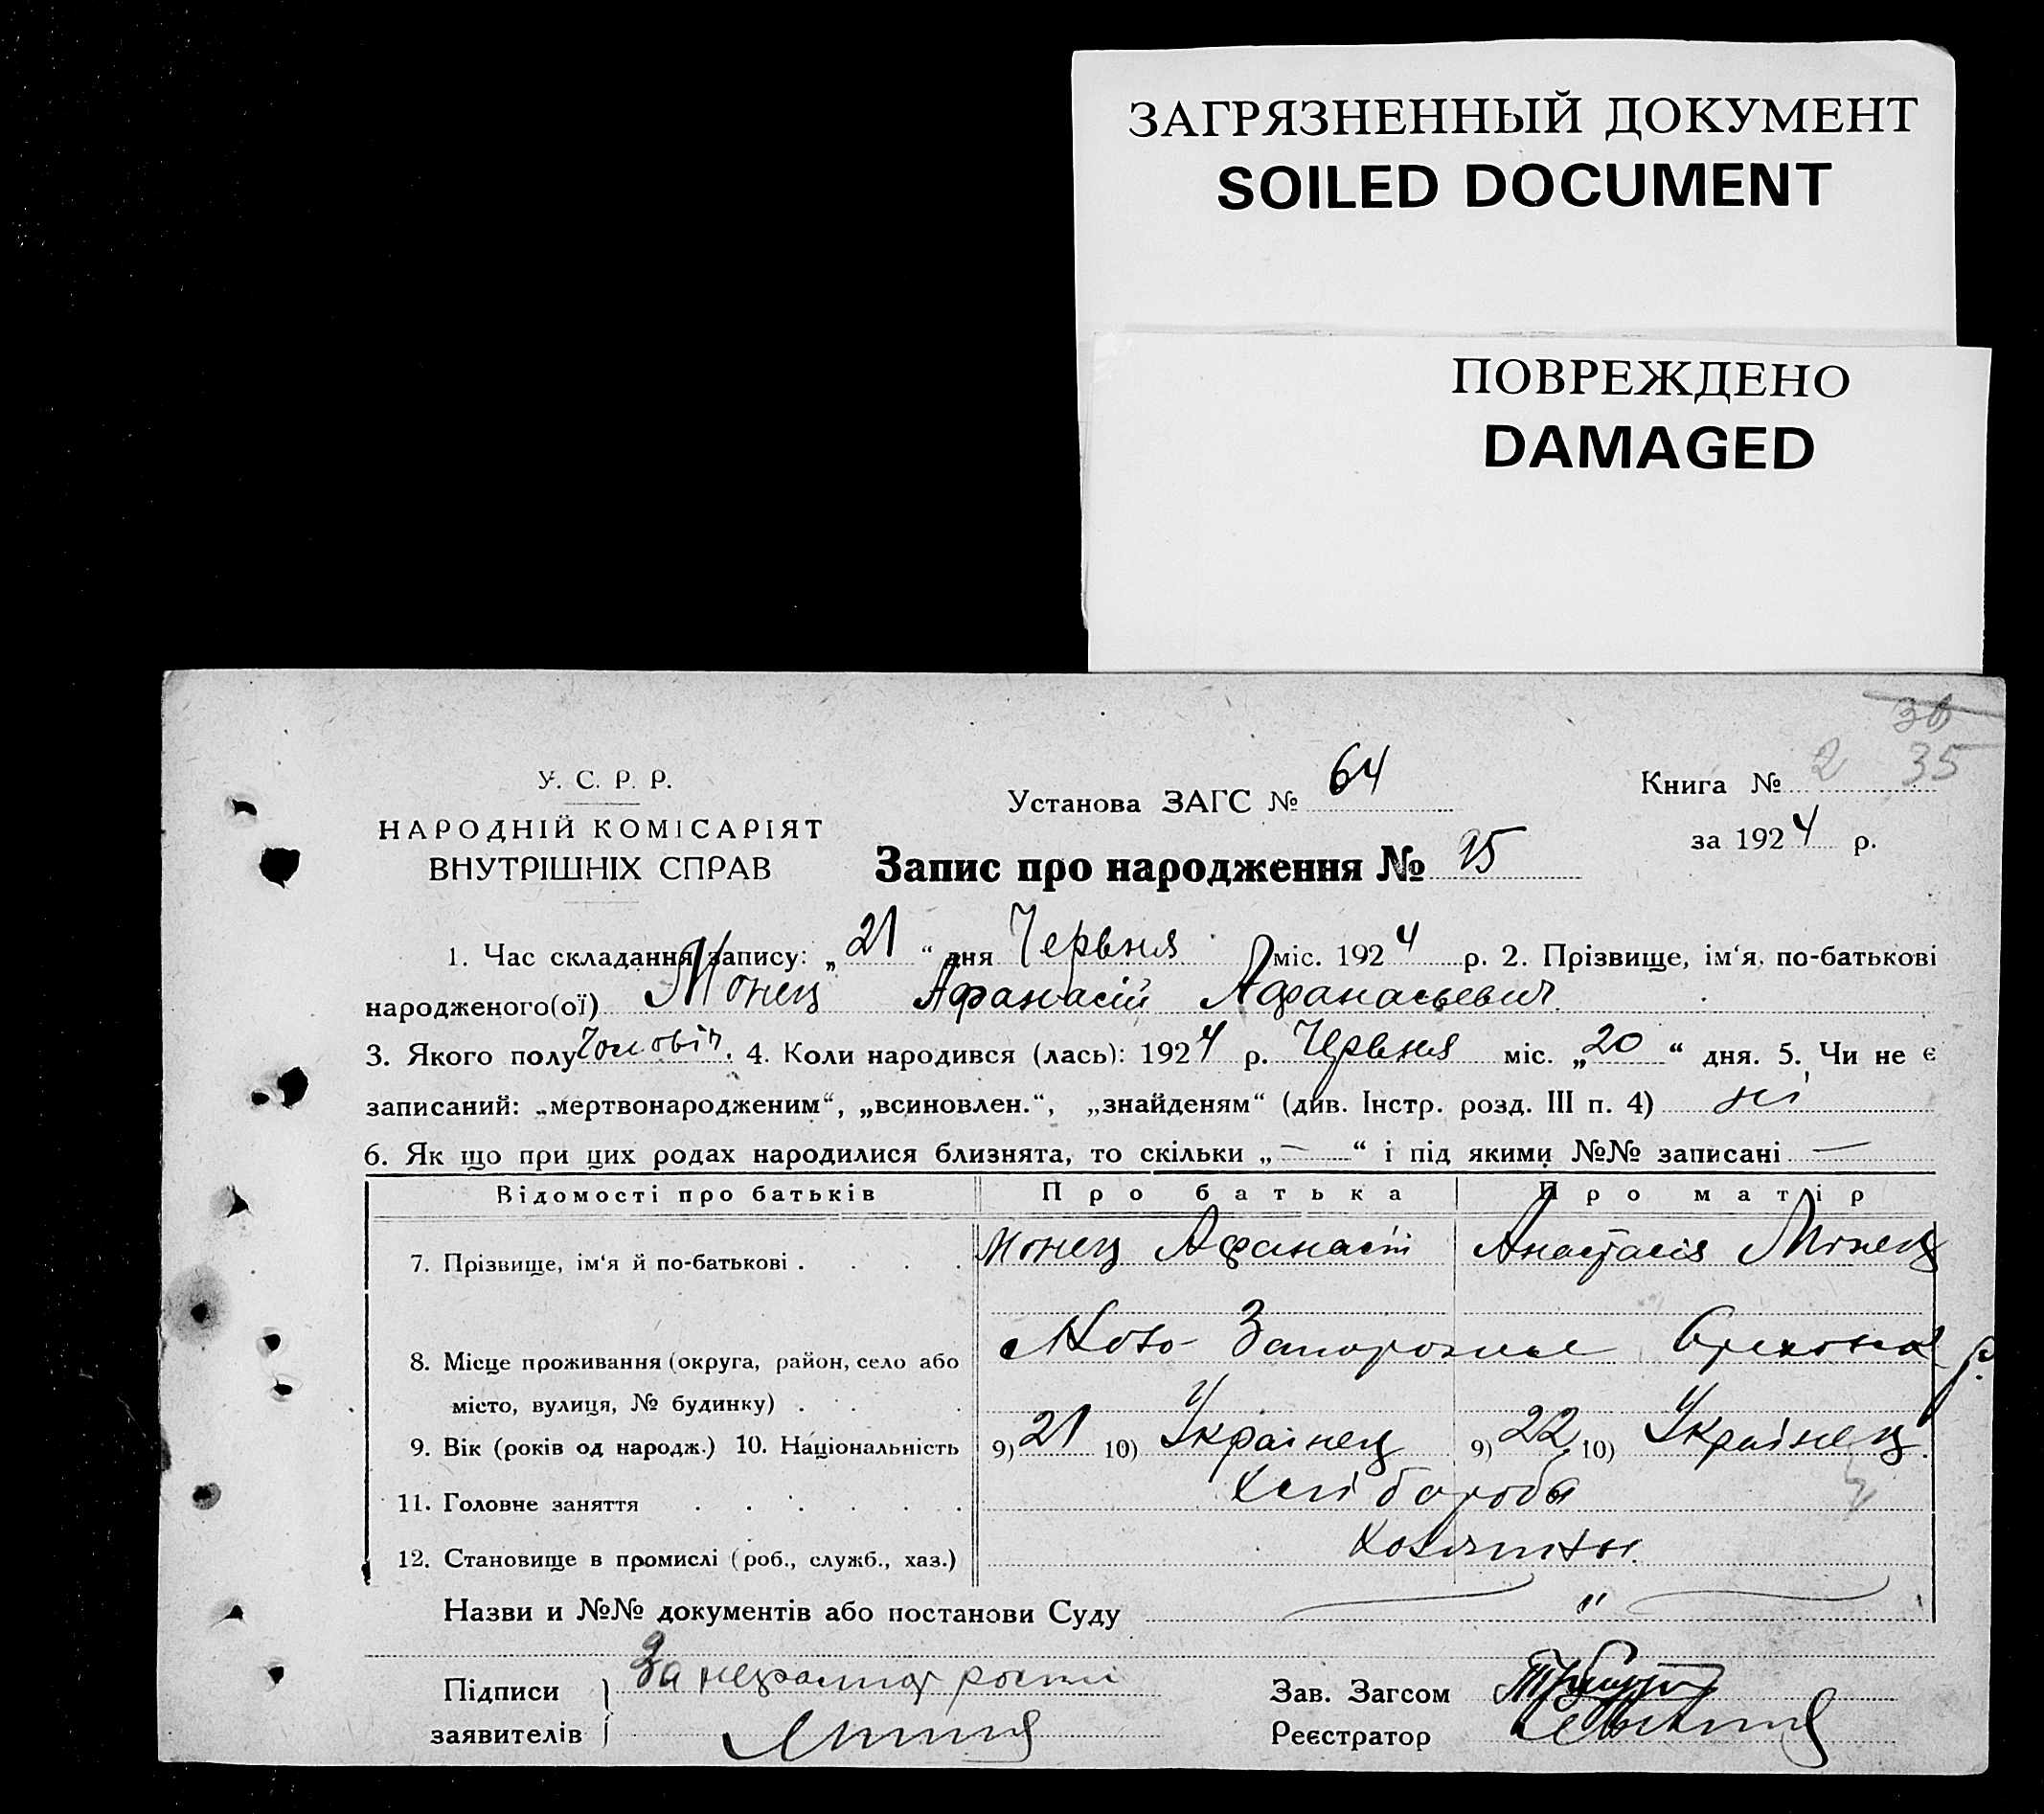 ЗАГРЯЗНЕННЫЙ ДОКУМЕНТ
SOILED DOCUMENT
ПОВРЕЖДЕНО
DAMAGED
30
35
У. С. Р. Р.
НАРОДНІЙ КОМІСАРІЯТ
ВНУТРІШНІХ СПРАВ
Установа ЗАГС № 64
Книга № 2
за 1924 р.
Запис про народження № 25
1. Час складання запису: „21“ дня Червня міс. 1924 р. 2. Прізвище, ім‘я, по-батькові
народженого(ої) Монец Афанасій Афанасьевич
3. Якого полу Чоловіч. 4. Коли народився (лась): 1924 р. Червня міс. „20“ дня. 5. Чи не є
записаний: „мертвонародженим“, „всиновлен.“, „знайденям“ (див. Інстр. розд. III п. 4) ні
6. Як що при цих родах народилися близнята, то скільки „—“ і під якими №№ записані —
Відомості про батьків Про батька Про матір
7. Прізвище, ім‘я й по-батькові . . . . Монец Афанасій Анастасія Монец
8. Місце проживання (округа, район, село або Ново-Запорожье Орехова р.
місто, вулиця, № будинку) . .
9. Вік (років од народж.) 10. Національність 9) 21 10) Украінец 9) 22 10) Украінец.
11. Головне заняття . . . . . Хлібороби
12. Становище в промислі (роб., служб., хаз.) Хозяины
Назви и №№ документів або постанови Суду "
Підписи За неграмот
заявителів
Зав. Загсом
Реєстратор